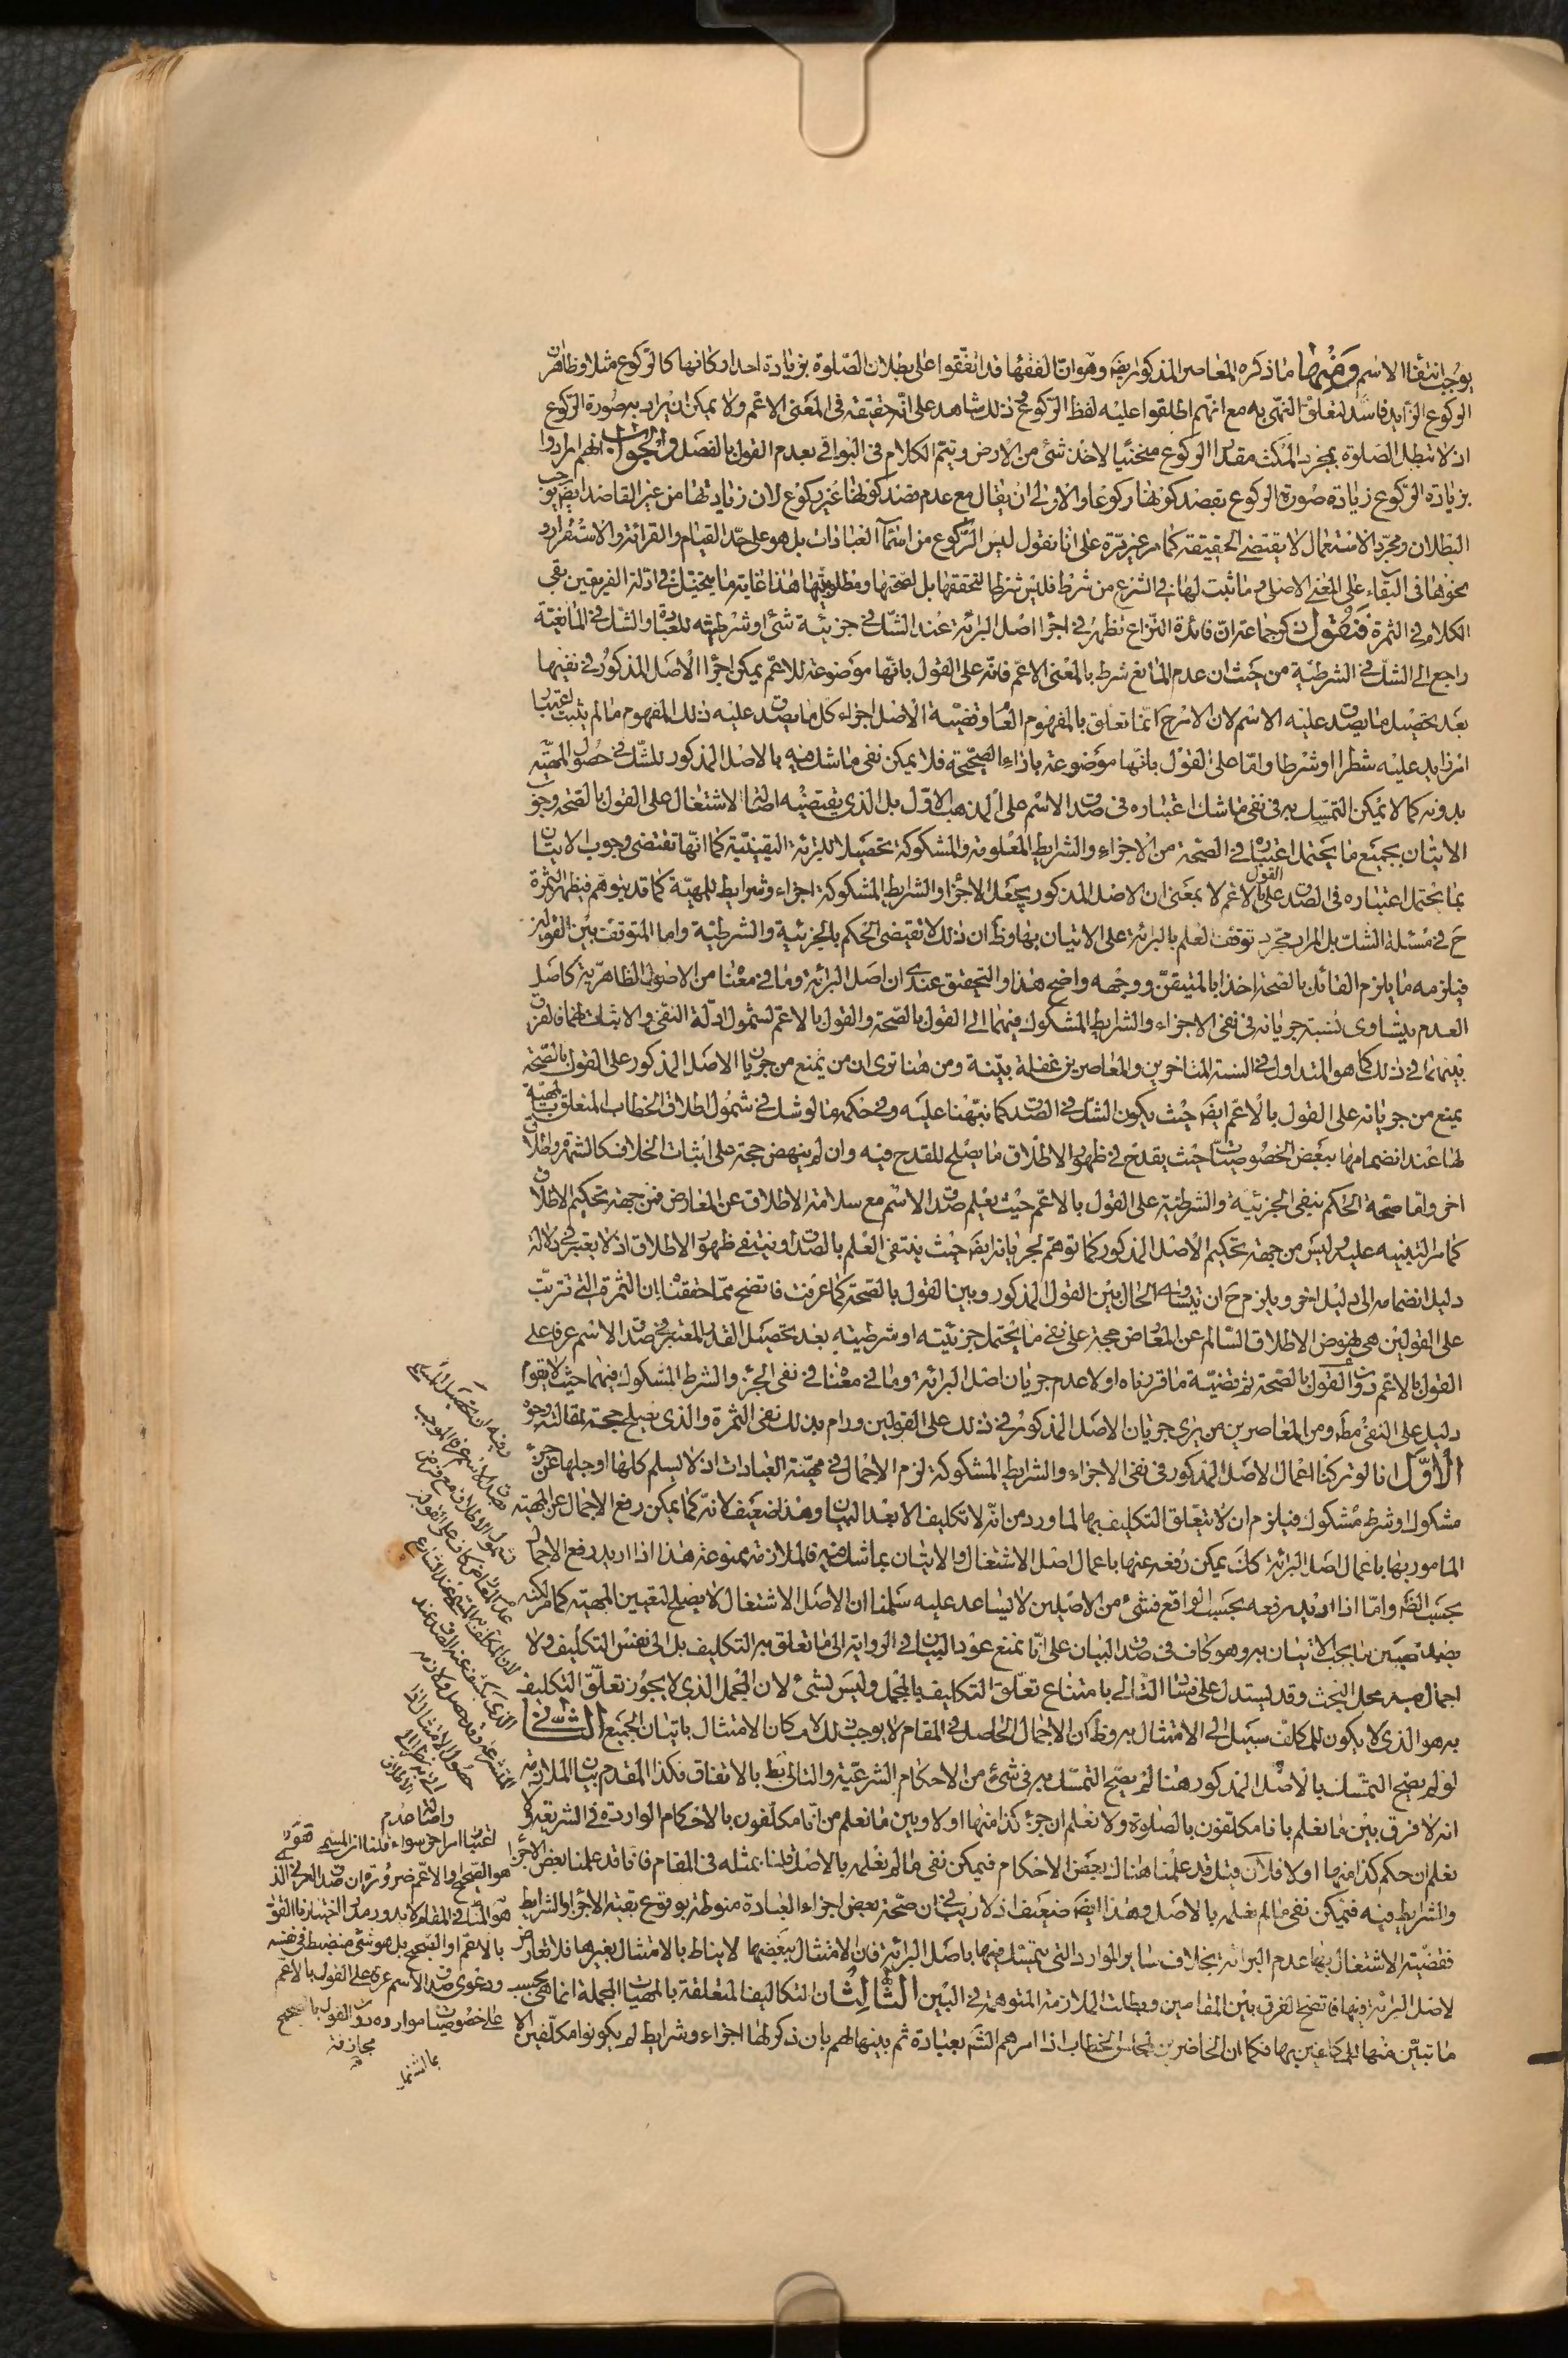 يوجب انتفاء الاسم ومنها ما ذكره المعاصر المذكور ايضَا وهو ان الفقهاء قد اتفقوا على بطلان الصّلوة بزيادة احد اركانها كالركوع مثلا وظاهر ان
الركوع الزايد فاسد لتعلّق النهى به مع انهم اطلقوا عليه لفظ الركوع فح ذلك شاهد على انّه حقيقة فى المعنى الاعم ولا يمكن ان يراد به صورة الركوع
اذ لا تبطل الصّلوة بمجرد المكث مقدار الركوع منحنيا لاخذ شئ من الارض ويتم الكلام فى البواقى بعدم القول بالفصل والجواب انهم ارادوا
بزيادة الركوع زيادة صورة الركوع بقصد كونها ركوعا والاولى ان يقال مع عدم قصد كونها غير ركوع لان زيادتها من غير القاصد ايضَا يوجب
البطلان ومجرّد الاستعمال لا يقتضى الحقيقة كما مر غير مرّة على انا نقول ليس الركوع من اسماء العبادات بل هو على حدّ القيام والقرائة والاستقرار و
نحوها فى البقاء على المعنى الاصلى وما ثبت لها فى الشرع من شرط فليس شرطا لتحققها بل لصحّتها ومطلوبيتها هذا غاية ما يتخيّل فى ادلة الفريقين بقى
الكلام فى الثمرة فنقول ذكر جماعة انّ فائدة النّزاع تظهر فى اجراء اصل البرائة عند الشكّ فى جزئية شئ او شرطيته للعبادة والشك فى المانعيّة
راجع الى الشكّ فى الشرطيّة من حيث ان عدم المانع شرط بالمعنى الاعمّ فانّه على القول بانّها موضوعة للاعمّ يمكن اجراء الاصل المذكور فى نفيها
بعد تحصيل ما يصدق عليه الاسم لان الامر ح انّما تعلّق بالمفهوم العام وقضيّة الاصل اجزاء كل ما يصدق عليه ذلك المفهوم ما لم يثبت اعتبار
امر زايد عليه شطرا او شرطا وامّا على القول بانّها موضوعة بازاء الصّحيحة فلا يمكن نفى ما شك فيه بالاصل المذكور للشّك فى حصول المهيّة
بدونه كما لا يمكن التمسّك به فى نفى ما شك اعتباره فى صدق الاسم على المذهب الاوّل بل الذى يقتضيه اصالة الاشتغال على القول بالصّحة وجوب
الاتيان بجميع ما يحتمل اعتباره فى الصّحة من الاجزاء والشرايط المعلومة والمشكوكة تحصيلا للبرائة اليقينيّة كما انّها تقتضى وجوب الاتيان
بما يحتمل اعتباره فى الصدق على القول بالاعم لا بمعنى ان الاصل المذكور يجعل الاجزاء والشرايط المشكوكة اجزاء وشرايط للمهيّة كما قد يتوهّم فيظهر الثمرة
ح فى مسئلة الشكّ بل المراد مجرّد توقف العلم بالبرائة على الاتيان بها وظ ان ذلك لا تقتضى الحكم بالجزئية والشرطيّة واما المتوقف بين القولين
فيلزمه ما يلزم القائل بالصّحة اخذا بالمتيقن ووجهه واضح هذا والتحقيق عندى ان اصل البرائة وما فى معناه من الاصول الظاهريّة كاصل
العدم يتساوى نسبة جريانه فى نفى الاجزاء والشرايط المشكوك فيهما الى القول بالصّحة والقول بالاعم لشمول ادلّة النفى والاثبات لهما فالفرق
بينهما فى ذلك كما هو المتداول فى السنة المتاخرين والمعاصرين غفلة بيّنة ومن هنا ترى ان من يمنع من جريان الاصل المذكور على القول بالصّحة
يمنع من جريانه على القول بالاعم ايضَا حيث يكون الشك فى الصدق كما نبّهنا عليه وفى حكمه ما لو شك فى شمول اطلاق الخطاب المتعلق بالمهيّة
لها عند انضمامها ببعض الخصوصيّات حيث يقدح فى ظهور الاطلاق ما يصلح للقدح فيه وان لم ينهض حجة على اثبات الخلاف كالشهرة واطلاق
اخر وامّا صحّة الحكم بنفى الجزئية والشرطيّة على القول بالاعمّ حيث يعلم صدق الاسم مع سلامة الاطلاق عن المعارض فمن جهة تحكيم الاطلاق
كما مر التنبيه عليه وليس من جهة تحكيم الاصل المذكور كما توهّم لجريانه ايضَا حيث ينتفى العلم بالصدق او ينتفى ظهور الاطلاق اذ لا يعتبر فى دلالة
دليل انضمامه الى دليل اخر ويلزم ح ان يتساوى الحال بين القول المذكور وبين القول بالصّحة كما عرفت فاتضح ممّا حققنا ان الثمرة التى تترتّب
على القولين هى نهوض الاطلاق السّالم عن المعارض حجة على نفى ما يحتمل جزئيّته او شرطيته بعد تحصيل القدر المعتبر فى صدق الاسم عرفا على
القول بالاعم دون القول بالصّحة ثم قضيّة ما قررناه اولا عدم جريان اصل البرائة وما فى معناه فى نفى الجزء والشرط المشكوك فيهما حيث لا يقوم
دليل على النفى مطَ ومن المعاصرين من يرى جريان الاصل المذكور فى ذلك على القولين ورام بذلك نفى الثمرة والذى يصلح حجة لمقالته وجوه
الاوّل انا لو تركنا اعمال الاصل المذكور فى نفى الاجزاء والشرايط المشكوكة لزم الاجمال فى مهيّة العبادات اذ لا يسلم كلها او جلها عن جزء
مشكوك او شرط مشكوك فيلزم ان لا يتعلّق التكليف بها لما ورد من انّه لا تكليف الا بعد البيان وهذا ضعيف لانّه كما يمكن رفع الاجمال عن المهيّة
المامور بها باعمال اصل البرائة كك يمكن رفعه عنها باعمال اصل الاشتغال والاتيان بما شك فيه فالملازمة ممنوعة هذا اذا اريد رفع الاجمال
بحسب الظَ وامّا اذا اريد رفعه بحسب الواقع فشئ من الاصلين لا يساعد عليه سلمنا ان الاصل الاشتغال لا يصلح لتعيين المهيّة كما مر لكنه
يصلح لتعيين ما يجب الاتيان به وهو كاف فى صدق البيان على انّا نمنع عود البيان فى الرواية الى ما تعلق به التكليف بل الى نفس التكليف ولا
اجمال فيه محل البحث وقد يستدل على فساد التالى بامتناع تعلّق التكليف بالمجمل وليس بشئ لان المجمل الذى لا يجوز تعلّق التكليف
به هو الذى لا يكون للمكلف سبيل الى الامتثال به وظ ان الاجمال الحاصل فى المقام لا يوجب ذلك لامكان الامتثال باتيان الجميع الثانى
لو لم يصح التمسّك بالاصل المذكور هنا لم يصح التمسّك به فى شئ من الاحكام الشرعيّة والتالى بط بالاتفاق فكذا المقدم بيان الملازمة
انه لا فرق بين ما نعلم بانا مكلفون بالصلوة ولا نعلم ان جزء كذا منها او لا وبين ما نعلم من انّا مكلّفون بالاحكام الواردة فى الشريعة ولا
نعلم ان حكم كذا منها او لا فان قيل قد علمنا هناك بعض الاحكام فيمكن نفى ما لم نعلمه بالاصل قلنا بمثله فى المقام فانا قد علمنا بعض الاجزاء
والشرايط فيه فيمكن نفى ما لم نعلمه بالاصل وهذا ايضَا ضعيف اذ لا ريب فى ان صحّة بعض اجزاء العبادة منوطة بوقوع بقية الاجزاء والشرايط
فقضيّة الاشتغال بها عدم البرائة بخلاف ساير الموارد التى يتمسّك فيها باصل البرائة فان الامتثال ببعضها لا يناط بالامتثال بغيرها فلا تعارض
لاصل البرائة فيها فاتضح الفرق بين المقامين وبطلت الملازمة المتوهمة فى البين الثالث ان التكاليف المتعلقة بالمهيات المجملة انما هى بحسب
ما تبيّن منها للمكلفين بها فكما ان الحاضرين لمجلس الخطاب اذا امرهم الشَم بعبادة ثم بينها لهم بان ذكر لها اجزاء وشرايط لم يكونوا مكلّفين الا